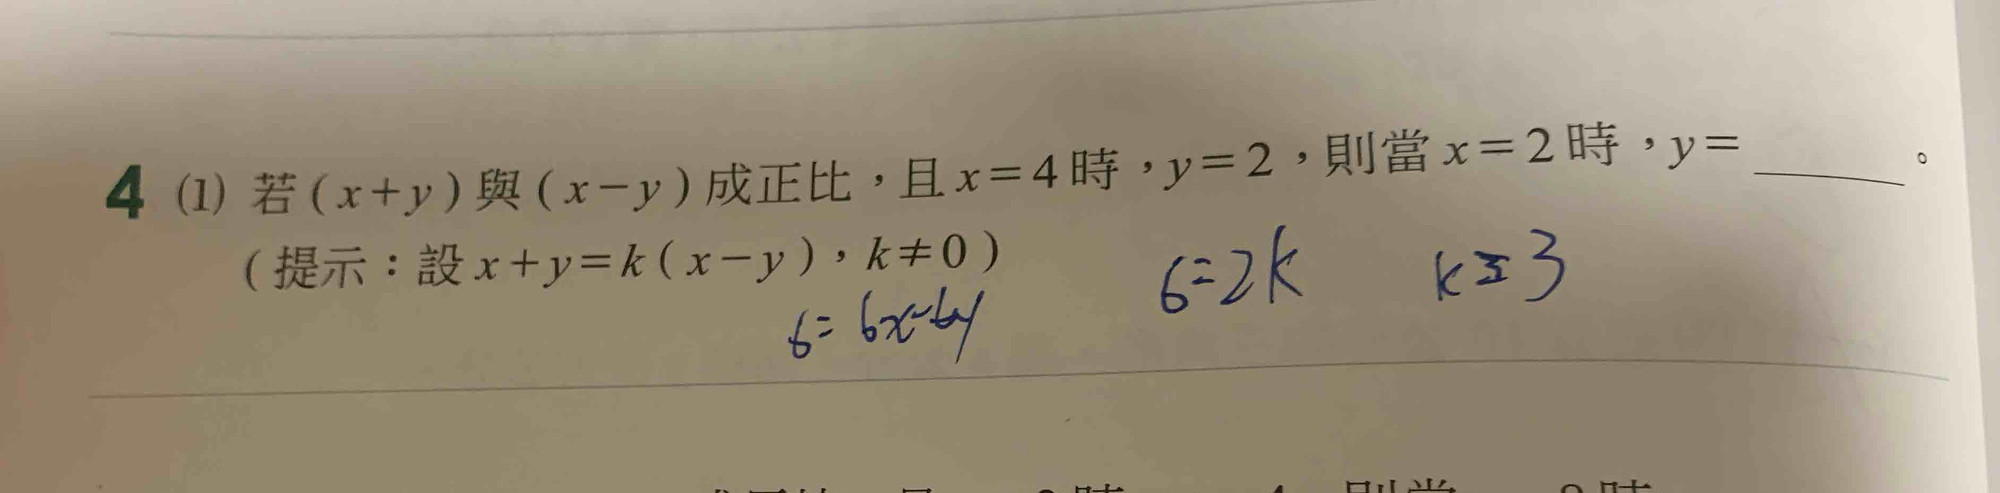 4 (1) 若(x+y)與(x-y)成正比,且x=4時,y=2,則當x=2時,y=______。
(提示:設x+y=k(x-y),k≠0)
6=2k k=3
6=6x-6y